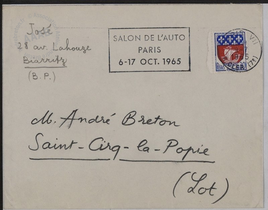 José
28 av. Lahouze
Biarritz
(B. P.)
SALON DE L'AUTO
PARIS
6-17 OCT. 1965
M. André Breton
Saint-Cirq-la-Popie
(Lot)